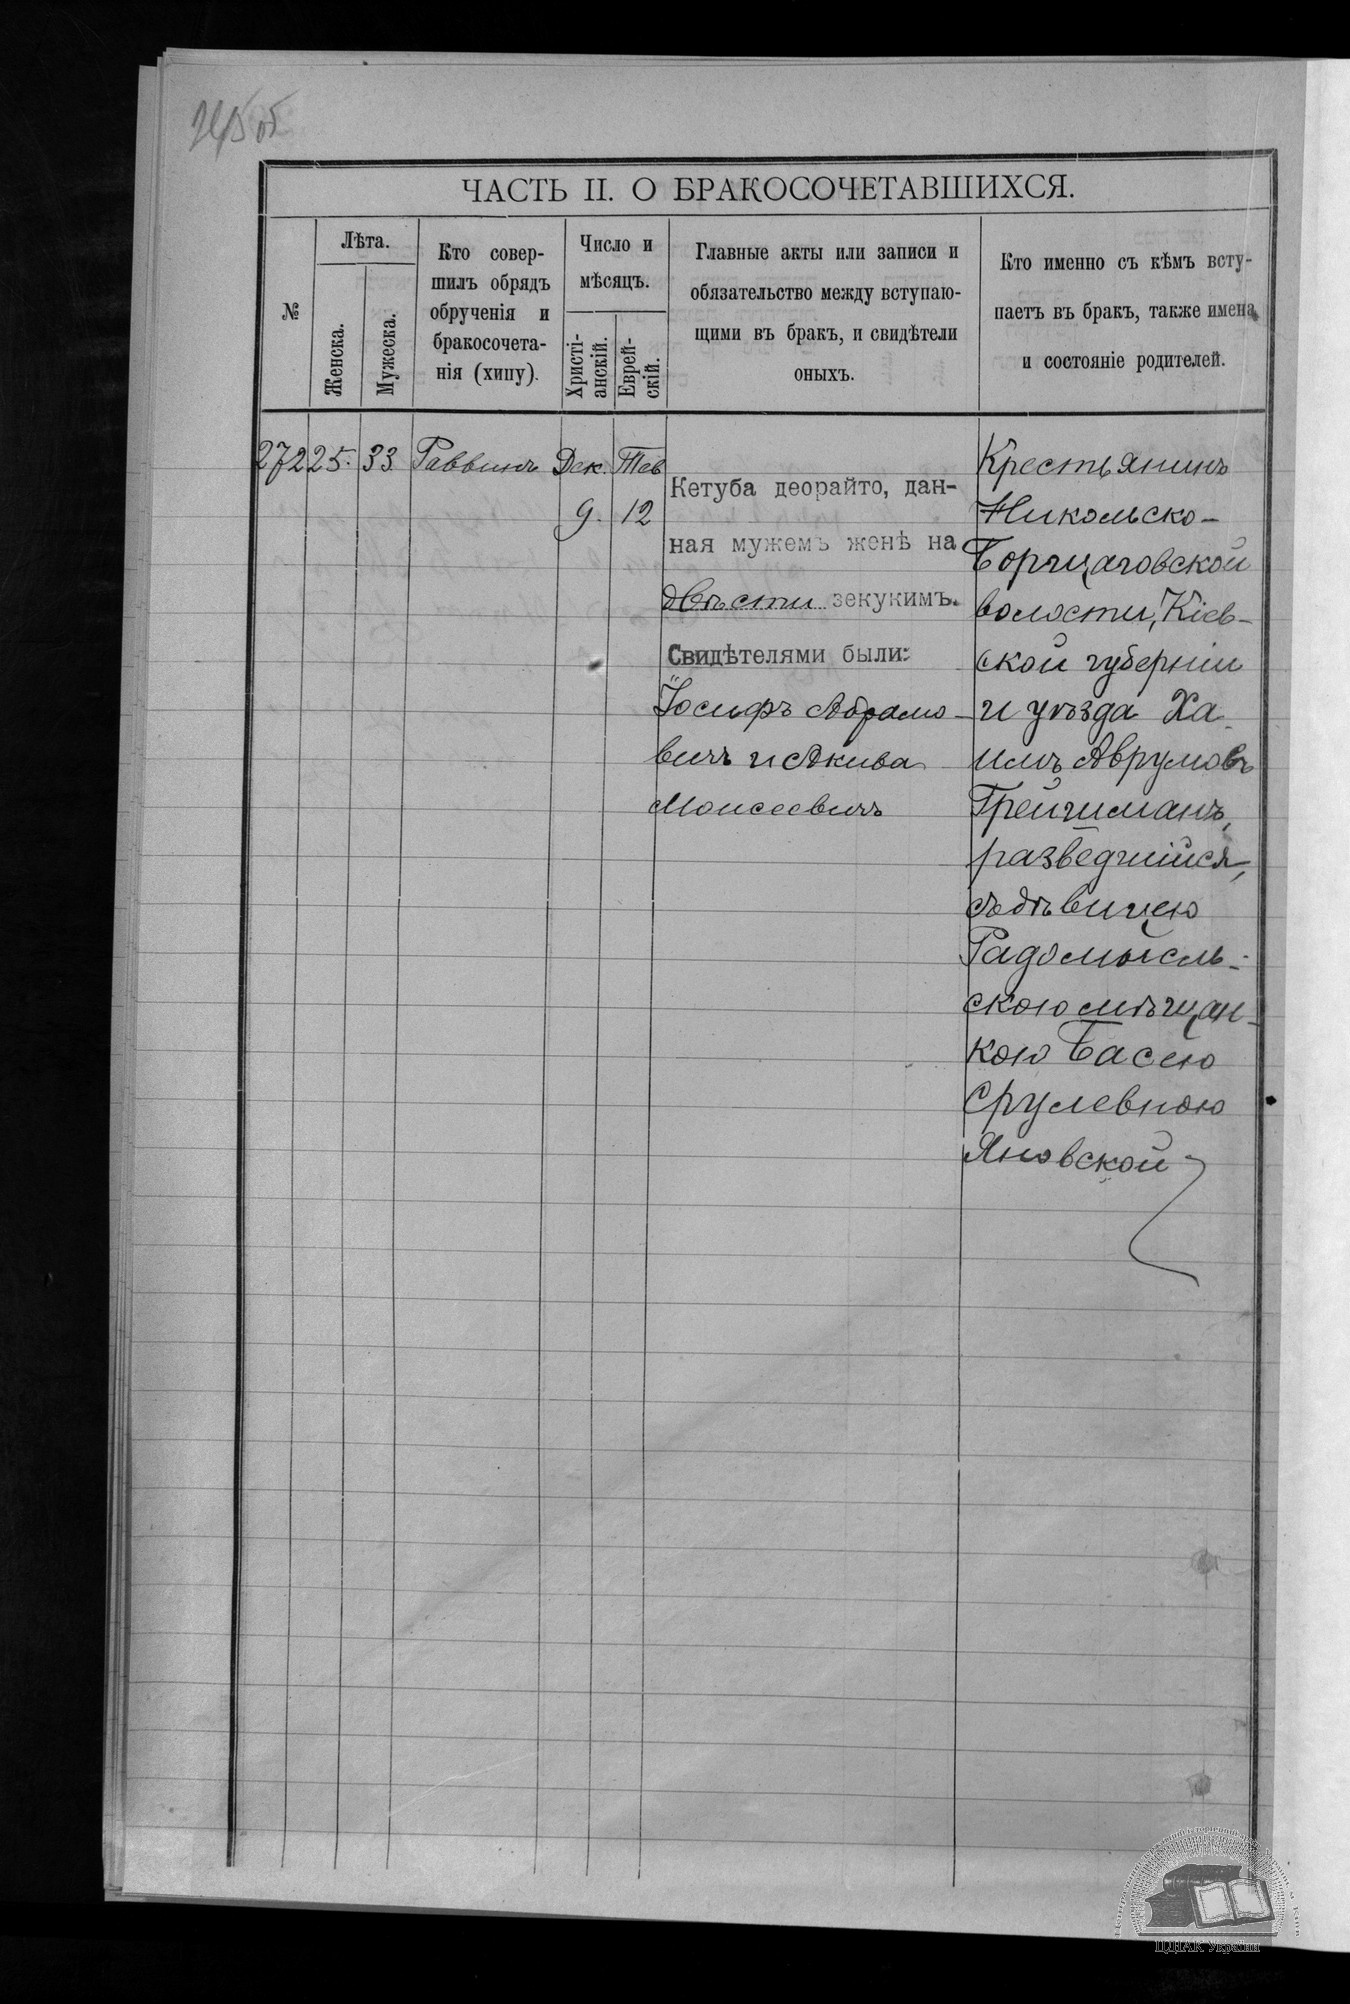 ЧАСТЬ II. О БРАКОСОЧЕТАВШИХСЯ.
№
Лѣта.
Женска.
Мужеска.
Кто совер-
шилъ обрядъ
обрученія и
бракосочета-
нія (хипу).
Число и
мѣсяцъ.
Христі-
анскій.
Еврей-
скій.
Главные акты или записи и
обязательство между вступаю-
щими въ бракъ, и свидѣтели
оныхъ.
Кто именно съ кѣмъ всту-
паетъ въ бракъ, также имена
и состояніе родителей.
272 25. 33 Раввинъ Дек. Тев
9. 12
Кетуба деорайто, дан-
ная мужемъ женѣ на
двѣсти зекукимъ.
Свидѣтелями были:
Іосифъ Абрамо-
вичъ и Акива
Моисеевичъ
Крестьянинъ
Никольско-
Борщаговской
волости, Кіев-
ской губерніи
и уѣзда Ха-
имъ Аврумовъ
Грейчманъ,
разведшійся,
съ дѣвицею
Радомысль-
скою мѣщан-
кою Басею
Срулевною
Яновской
ЦДІАК України